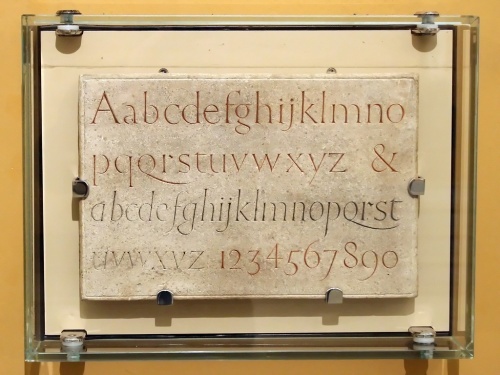 Aabcdefghijklmno
pqqrstuvwxyz &
abcdefghijklmnopqrst
uvwxyz 1234567890